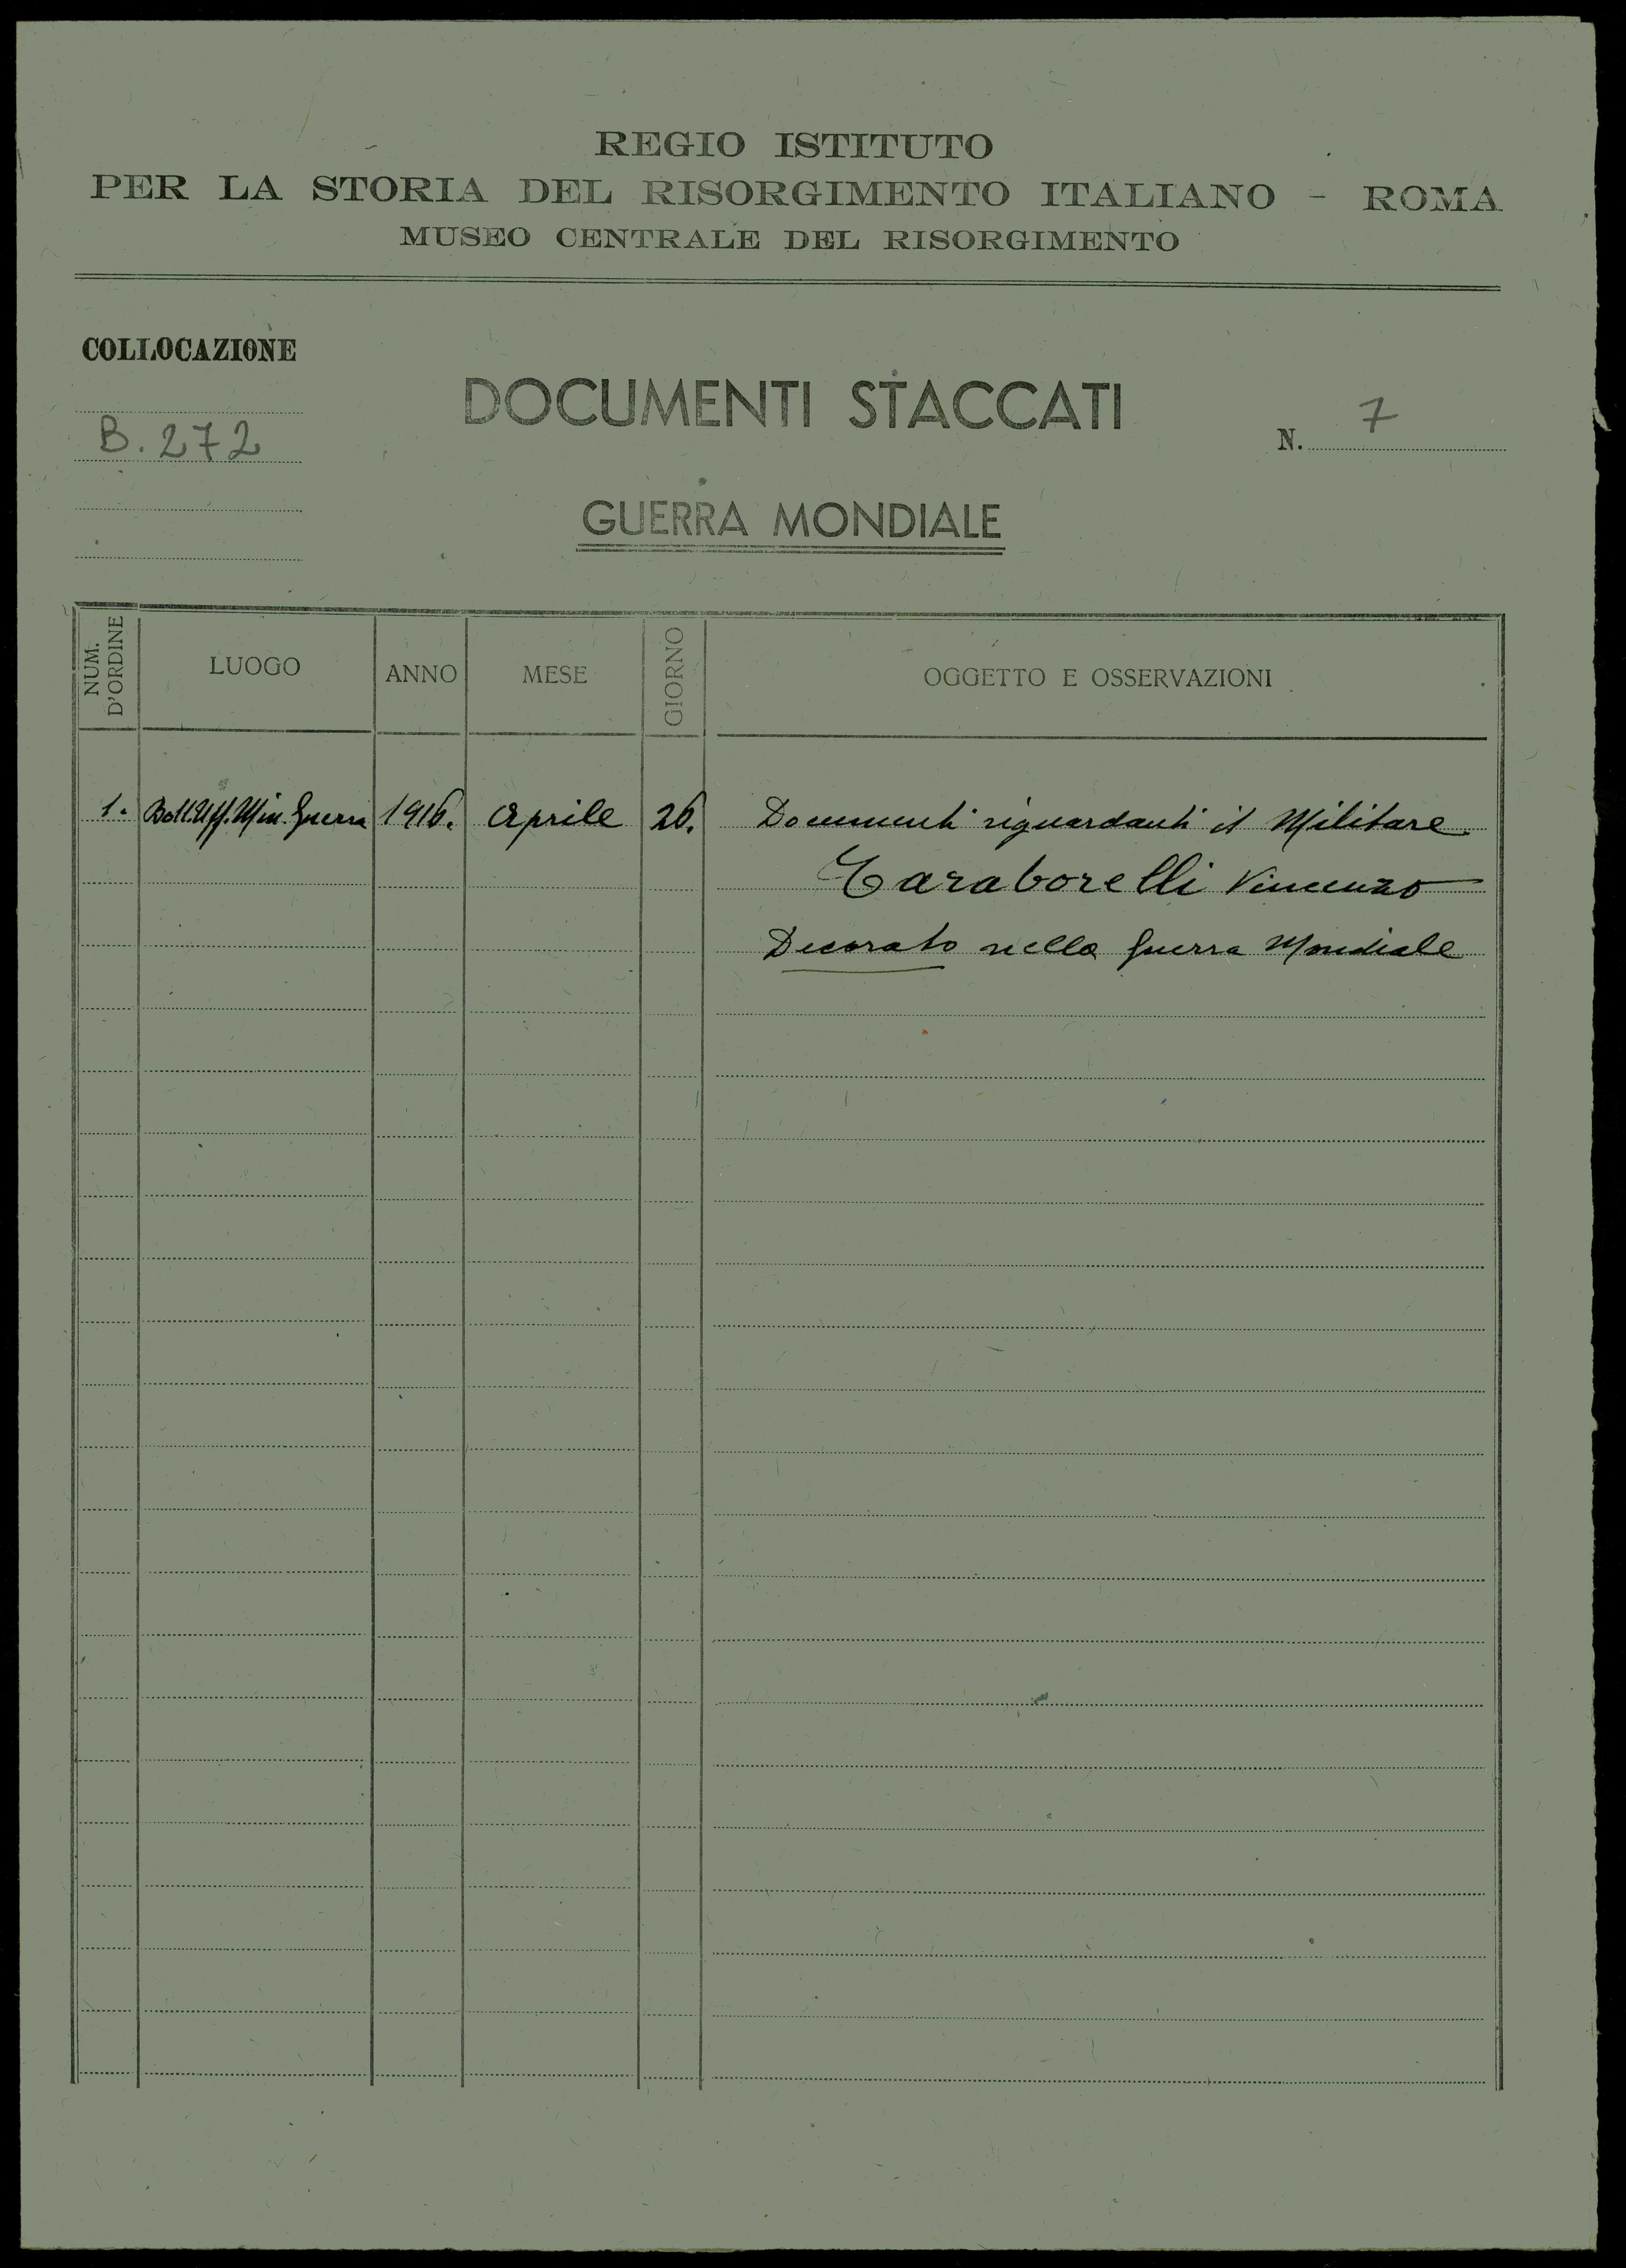 REGIO ISTITUTO
PER LA STORIA DEL RISORGIMENTO ITALIANO - ROMA
MUSEO CENTRALE DEL RISORGIMENTO
COLLOCAZIONE
B. 272
DOCUMENTI STACCATI
N. 7
GUERRA MONDIALE
NUM. D'ORDINE LUOGO ANNO MESE GIORNO OGGETTO E OSSERVAZIONI
1. Boll. Uff. Min. Guerra 1916. Aprile 26. Documenti riguardanti il Militare
Taraborelli Vincenzo
Decorato nella Guerra Mondiale